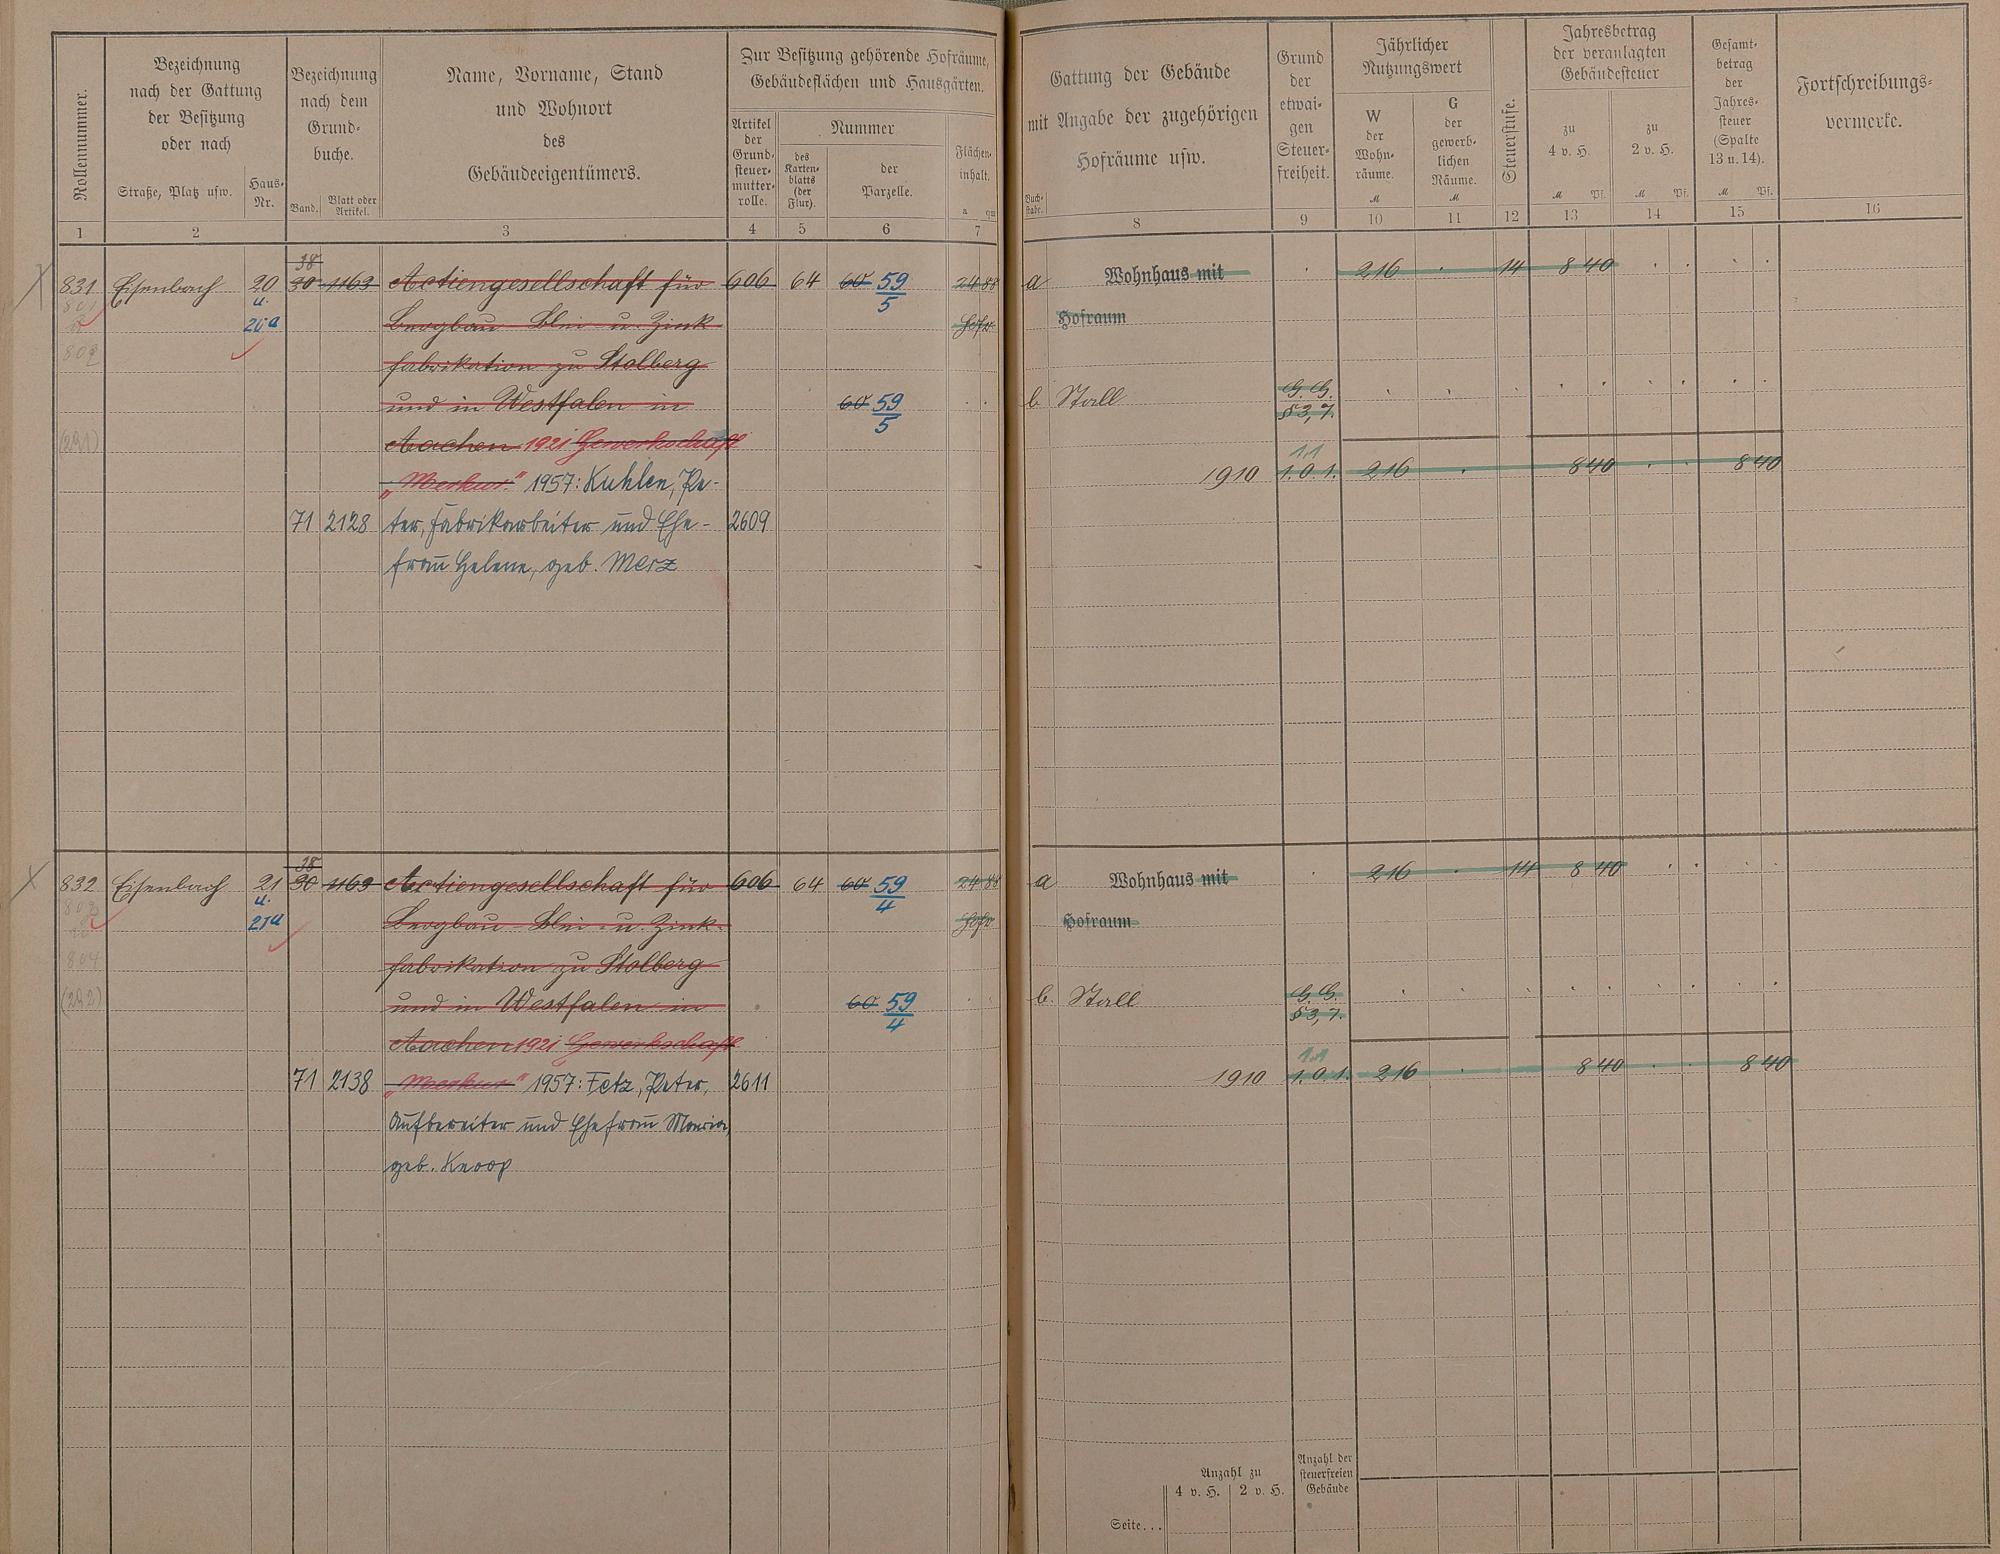 Rollennummer.
Bezeichnung
nach der Gattung
der Besitzung
oder nach
Straße, Platz usw.
Haus-
Nr.
Bezeichnung
nach dem
Grund-
buche.
Band.
Blatt oder
Artikel.
Name, Vorname, Stand
und Wohnort
des
Gebäudeeigentümers.
Zur Besitzung gehörende Hofräume,
Gebäudeflächen und Hausgärten.
Artikel
der
Grund-
steuer-
mutter-
rolle.
Nummer
des
Karten-
blatts
(der
Flur).
der
Parzelle.
Flächen-
inhalt.
a qm
1 2 3 4 5 6 7
38
831 Eisenbach 20 30 1163 Actiengesellschaft für 606 64 60 59/5 24 88
u.
20a Bergbau Blei u. Zink Hofr.
802 fabrikation zu Stolberg
und in Westfalen in 60 59/5
(291) Aachen 1921 Gewerkschaft
"Merkur" 1957: Kuhlen, Pe-
71 2128 ter, Fabrikarbeiter und Ehe- 2609
frau Helene, geb. Merz
38
832 Eisenbach 21 30 1163 Actiengesellschaft für 606 64 60 59/4 24 88
u.
21a Bergbau Blei u. Zink- Hofr
804 fabrikation zu Stolberg
(292) und in Westfalen in 60 59/4
Aachen 1921 Gewerkschaft
71 2138 "Merkur" 1957: Fetz, Peter, 2611
Aufbereiter und Ehefrau Maria,
geb. Knoop
Buch-
stabe.
Gattung der Gebäude
mit Angabe der zugehörigen
Hofräume usw.
Grund
der
etwai-
gen
Steuer-
freiheit.
Jährlicher
Nutzungswert
W
der
Wohn-
räume.
M
G
der
gewerb-
lichen
Räume.
M
Steuerstufe.
Jahresbetrag
der veranlagten
Gebäudesteuer
zu
4 v. H.
M Pf.
zu
2 v. H.
M Pf.
Gesamt-
betrag
der
Jahres-
steuer
(Spalte
13 u. 14).
M Pf.
Fortschreibungs-
vermerke.
8 9 10 11 12 13 14 15 16
a Wohnhaus mit 216 14 8 40
Hofraum
b Stall G. G.
§3, 7.
1.1
1910 1.0.1. 216 8 40 8 40
a Wohnhaus mit 216 14 8 40
Hofraum
b. Stall G. G.
§3, 7.
1.1
1910 1.0.1. 216 8 40 8 40
Anzahl zu
4 v. H. 2 v. H.
Anzahl der
steuerfreien
Gebäude
Seite...